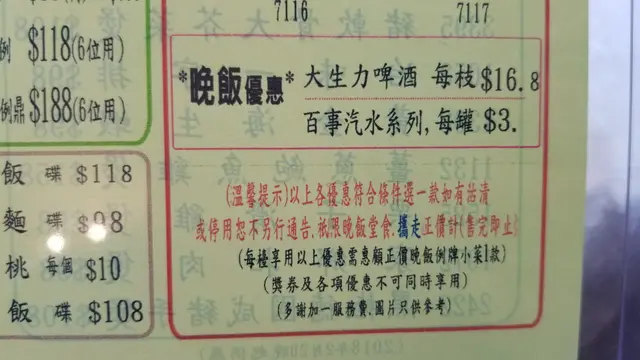 7116
7117
例 $118(6位用)
例鼎$188(6位用)
*晚飯優惠*
大生力啤酒 每枝$16.8
百事汽水系列,每罐 $3.
飯 碟 $118
麵 碟 $98
桃 每個 $10
飯 碟 $108
(溫馨提示)以上各優惠符合條件選一款如有沽清
或停用恕不另行通告.祇限晚飯堂食.攜走正價計(售完即止)
(每檯享用以上優惠需惠顧正價晚飯例牌小菜1款)
(獎券及各項優惠不可同時享用)
(多謝加一服務費.圖片只供參考)